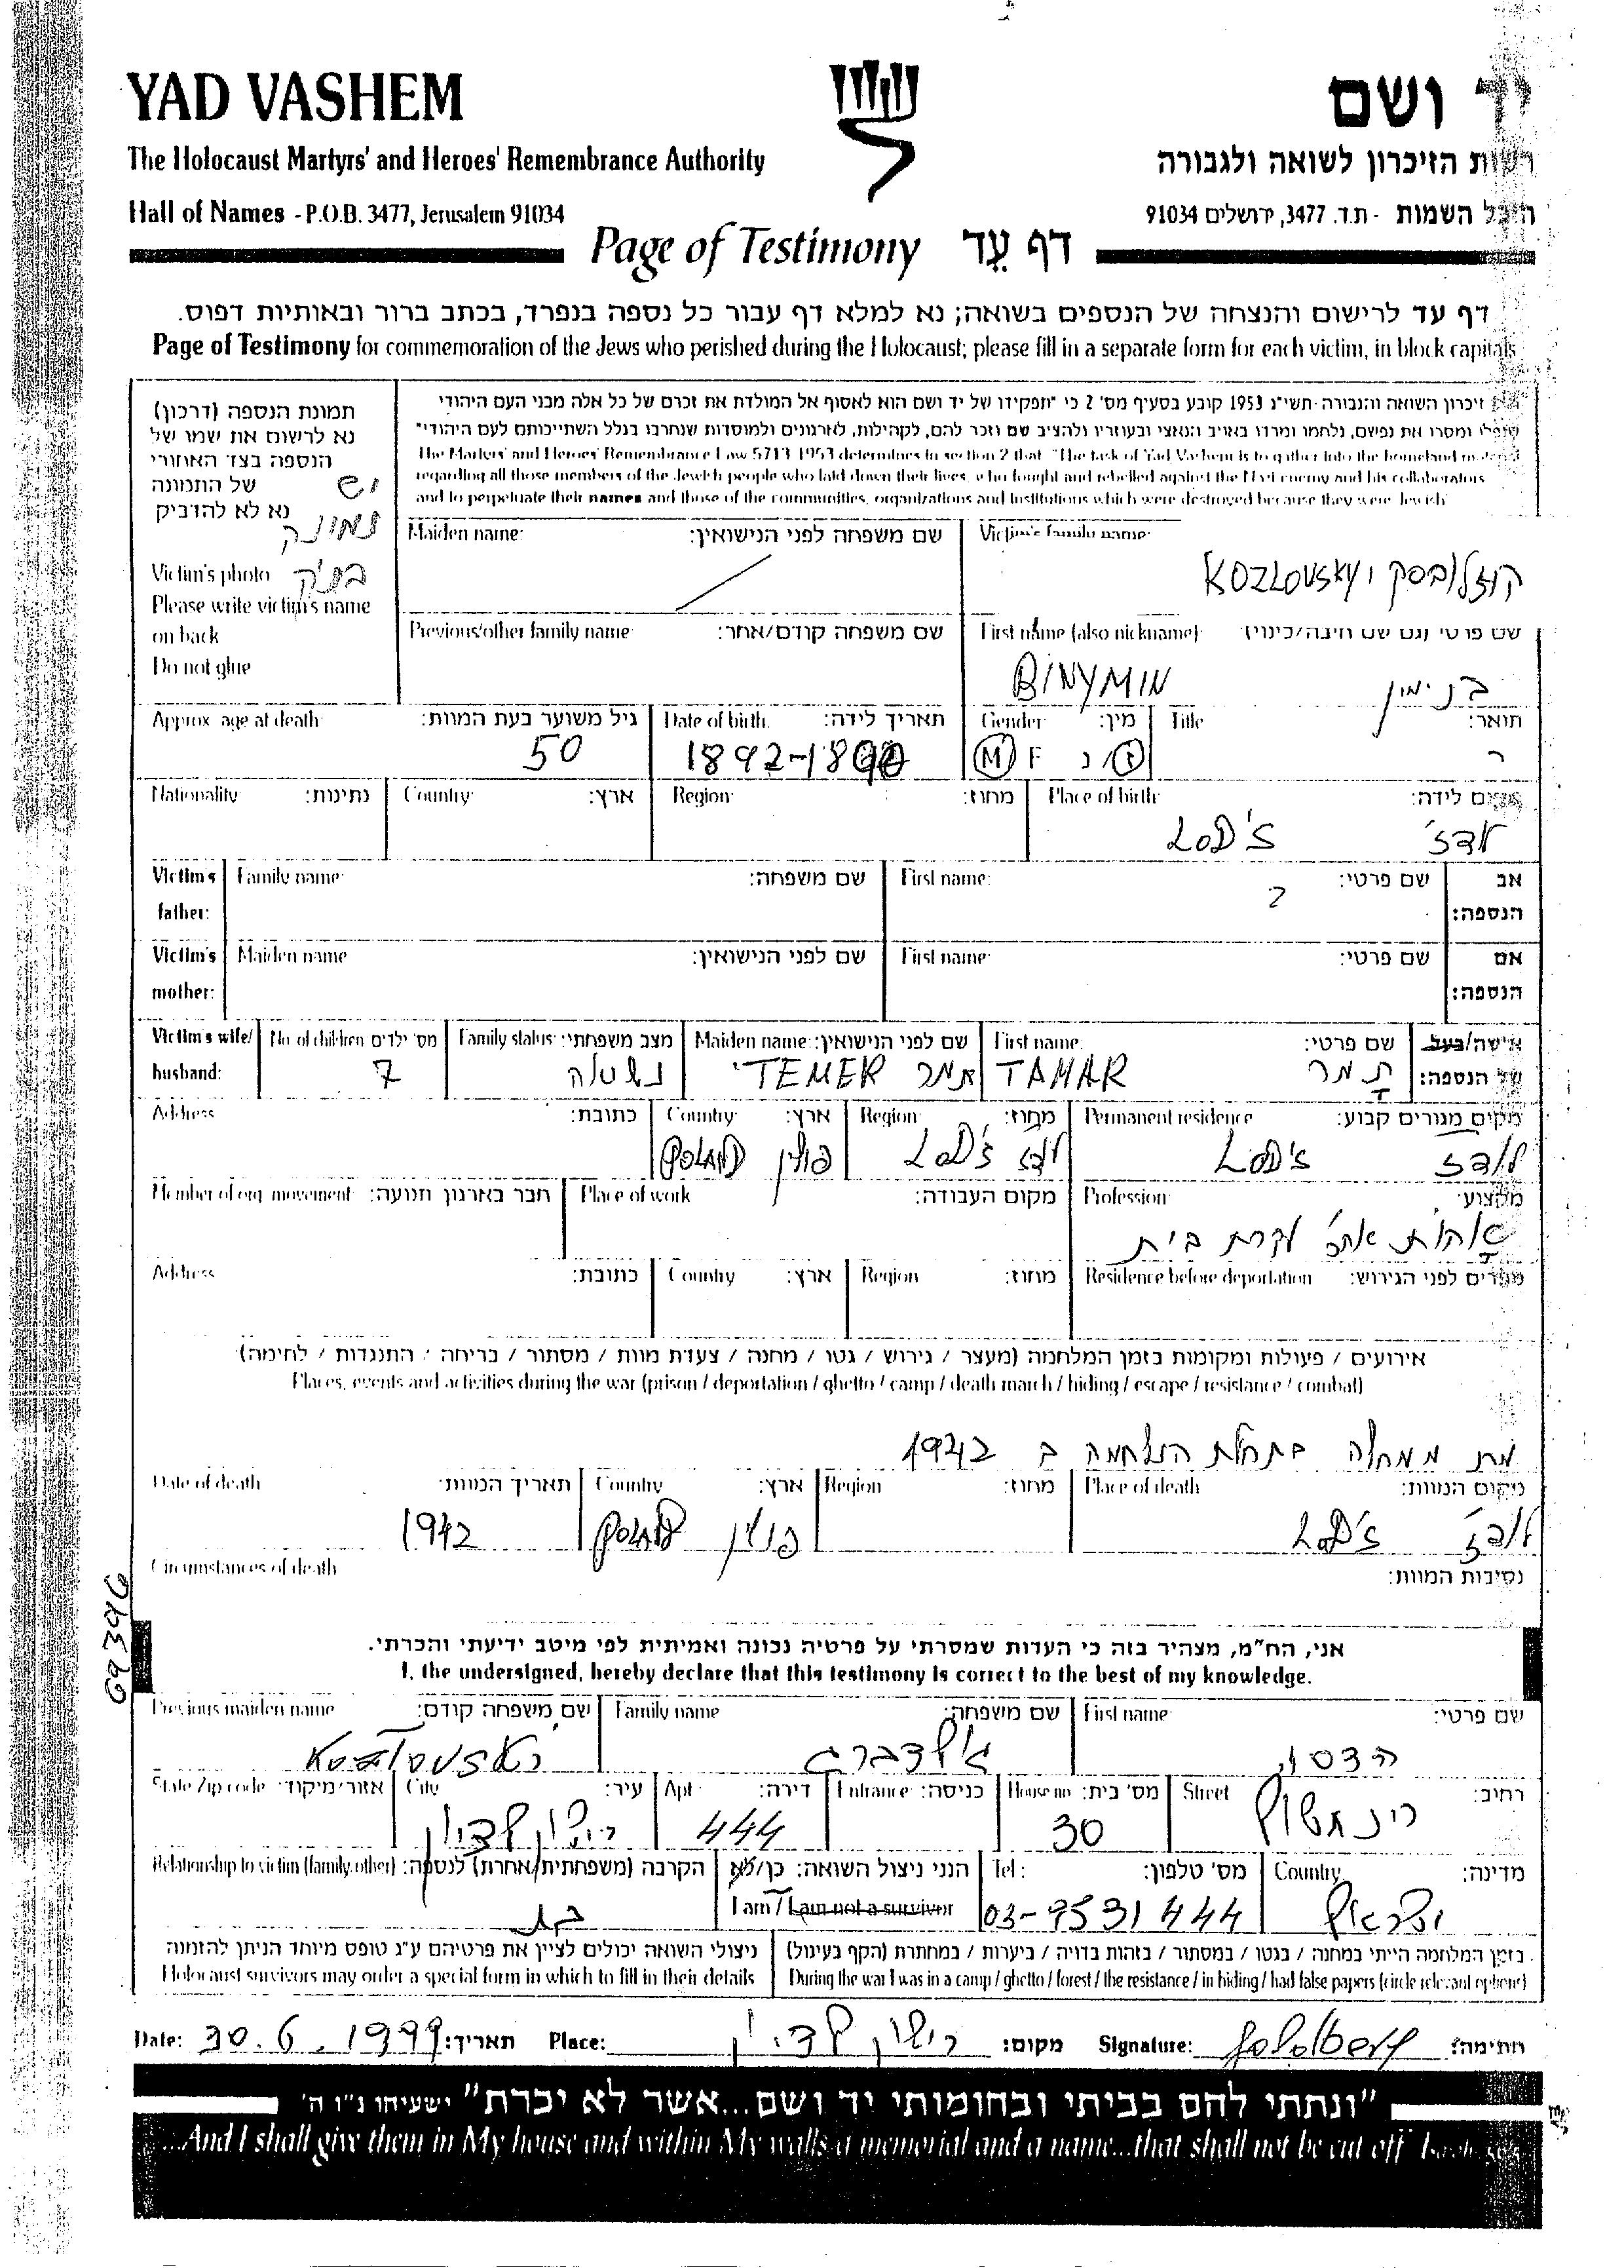 YAD VASHEM
יד ושם
The Holocaust Martyrs' and Heroes' Remembrance Authority
רשות הזיכרון לשואה ולגבורה
Hall of Names - P.O.B. 3477, Jerusalem 91034
היכל השמות - ת.ד. 3477, ירושלים 91034
Page of Testimony דף עֵד
דף עד לרישום והנצחה של הנספים בשואה; נא למלא דף עבור כל נספה בנפרד, בכתב ברור ובאותיות דפוס.
Page of Testimony for commemoration of the Jews who perished during the Holocaust; please fill in a separate form for each victim, in block capitals
תמונת הנספה (דרכון)
נא לרשום את שמו של
הנספה בצד האחורי
של התמונה
נא לא להדביק
יש
תמונה
בתיק
Victim's photo
Please write victim's name
on back
Do not glue
זיכרון השואה והגבורה תשי"ג 1953 קובע בסעיף מס' 2 כי "תפקידו של יד ושם הוא לאסוף אל המולדת את זכרם של כל אלה מבני העם היהודי
שנפלו ומסרו את נפשם, נלחמו ומרדו באויב הנאצי ובעוזריו ולהציב שם וזכר להם, לקהילות, לארגונים ולמוסדות שנחרבו בגלל השתייכותם לעם היהודי"
The Martyrs' and Heroes' Remembrance Law 5713-1953 determines in section 2 that "The task of Yad Vashem is to gather into the homeland material
regarding all those members of the Jewish people who laid down their lives, who fought and rebelled against the Nazi enemy and his collaborators
and to perpetuate their names and those of the communities, organizations and institutions which were destroyed because they were Jewish
Maiden name: שם משפחה לפני הנישואין:
Victim's family name:
KOZLOVSKY קוזלובסקי
Previous/other family name שם משפחה קודם/אחר:
First name (also nickname): שם פרטי (גם שם חיבה/כינוי):
BINYMIN בנימין
Approx. age at death: גיל משוער בעת המוות:
50
Date of birth: תאריך לידה:
1892-1890
Gender: מין:
M F נ ז
Title תואר:
ר
Nationality: נתינות:
Country: ארץ:
Region: מחוז:
Place of birth: מקום לידה:
LOD'S לודז'
Victim's father: Family name: שם משפחה:
First name: שם פרטי: אב הנספה:
?
Victim's mother: Maiden name שם לפני הנישואין:
First name: שם פרטי: אם הנספה:
Victim's wife/ husband:
No. of children מס' ילדים
7
Family status: מצב משפחתי:
נשוי
Maiden name: שם לפני הנישואין:
TEMER תמר
First name: שם פרטי:
TAMAR תמר
אישה/בעל של הנספה:
Address כתובת:
Country: ארץ:
POLAND פולין
Region: מחוז:
LOD'S לודז
Permanent residence מקום מגורים קבוע:
LOD'S לודז
Member of org. movement חבר בארגון תנועה:
Place of work מקום העבודה:
Profession: מקצוע:
בית
Address כתובת:
Country ארץ:
Region מחוז:
Residence before deportation מגורים לפני הגירוש:
אירועים / פעולות ומקומות בזמן המלחמה (מעצר / גירוש / גטו / מחנה / צעדת מוות / מסתור / בריחה / התנגדות / לחימה)
Places, events and activities during the war (prison / deportation / ghetto / camp / death march / hiding / escape / resistance / combat)
מת ממחלה בתחלת המלחמה ב 1942
Date of death תאריך המוות:
1942
Country ארץ:
POLAND פולין
Region מחוז:
Place of death מקום המוות:
LOD'S לודז'
Circumstances of death נסיבות המוות:
69396
אני, הח"מ, מצהיר בזה כי העדות שמסרתי על פרטיה נכונה ואמיתית לפי מיטב ידיעתי והכרתי.
I, the undersigned, hereby declare that this testimony is correct to the best of my knowledge.
Previous maiden name שם משפחה קודם:
Family name שם משפחה:
גולדברג
First name שם פרטי:
הדסה
State/Zip code אזור/מיקוד:
City עיר:
ראשון לציון
Apt דירה:
444
Entrance כניסה:
House no מס' בית:
30
Street רחוב:
Relationship to victim (family/other) הקרבה (משפחתית/אחרת) לנספה:
בת
הנני ניצול השואה: כן/לא
I am / I am not a survivor
Tel: מס' טלפון:
03-9531444
Country מדינה:
ישראל
ניצולי השואה יכולים לציין את פרטיהם ע"ג טופס מיוחד הניתן להזמנה
Holocaust survivors may order a special form in which to fill in their details
בזמן המלחמה הייתי במחנה / בגטו / במסתור / בזהות בדויה / ביערות / במחתרת (הקף בעיגול)
During the war I was in a camp / ghetto / forest / the resistance / in hiding / had false papers (circle relevant options)
Date: 30.6.1999 תאריך: Place: ראשון לציון מקום: Signature: Goldberg חתימה:
"ונתתי להם בביתי ובחומותי יד ושם...אשר לא יכרת" ישעיהו נ"ו ה'
...And I shall give them in My house and within My walls a memorial and a name...that shall not be cut off